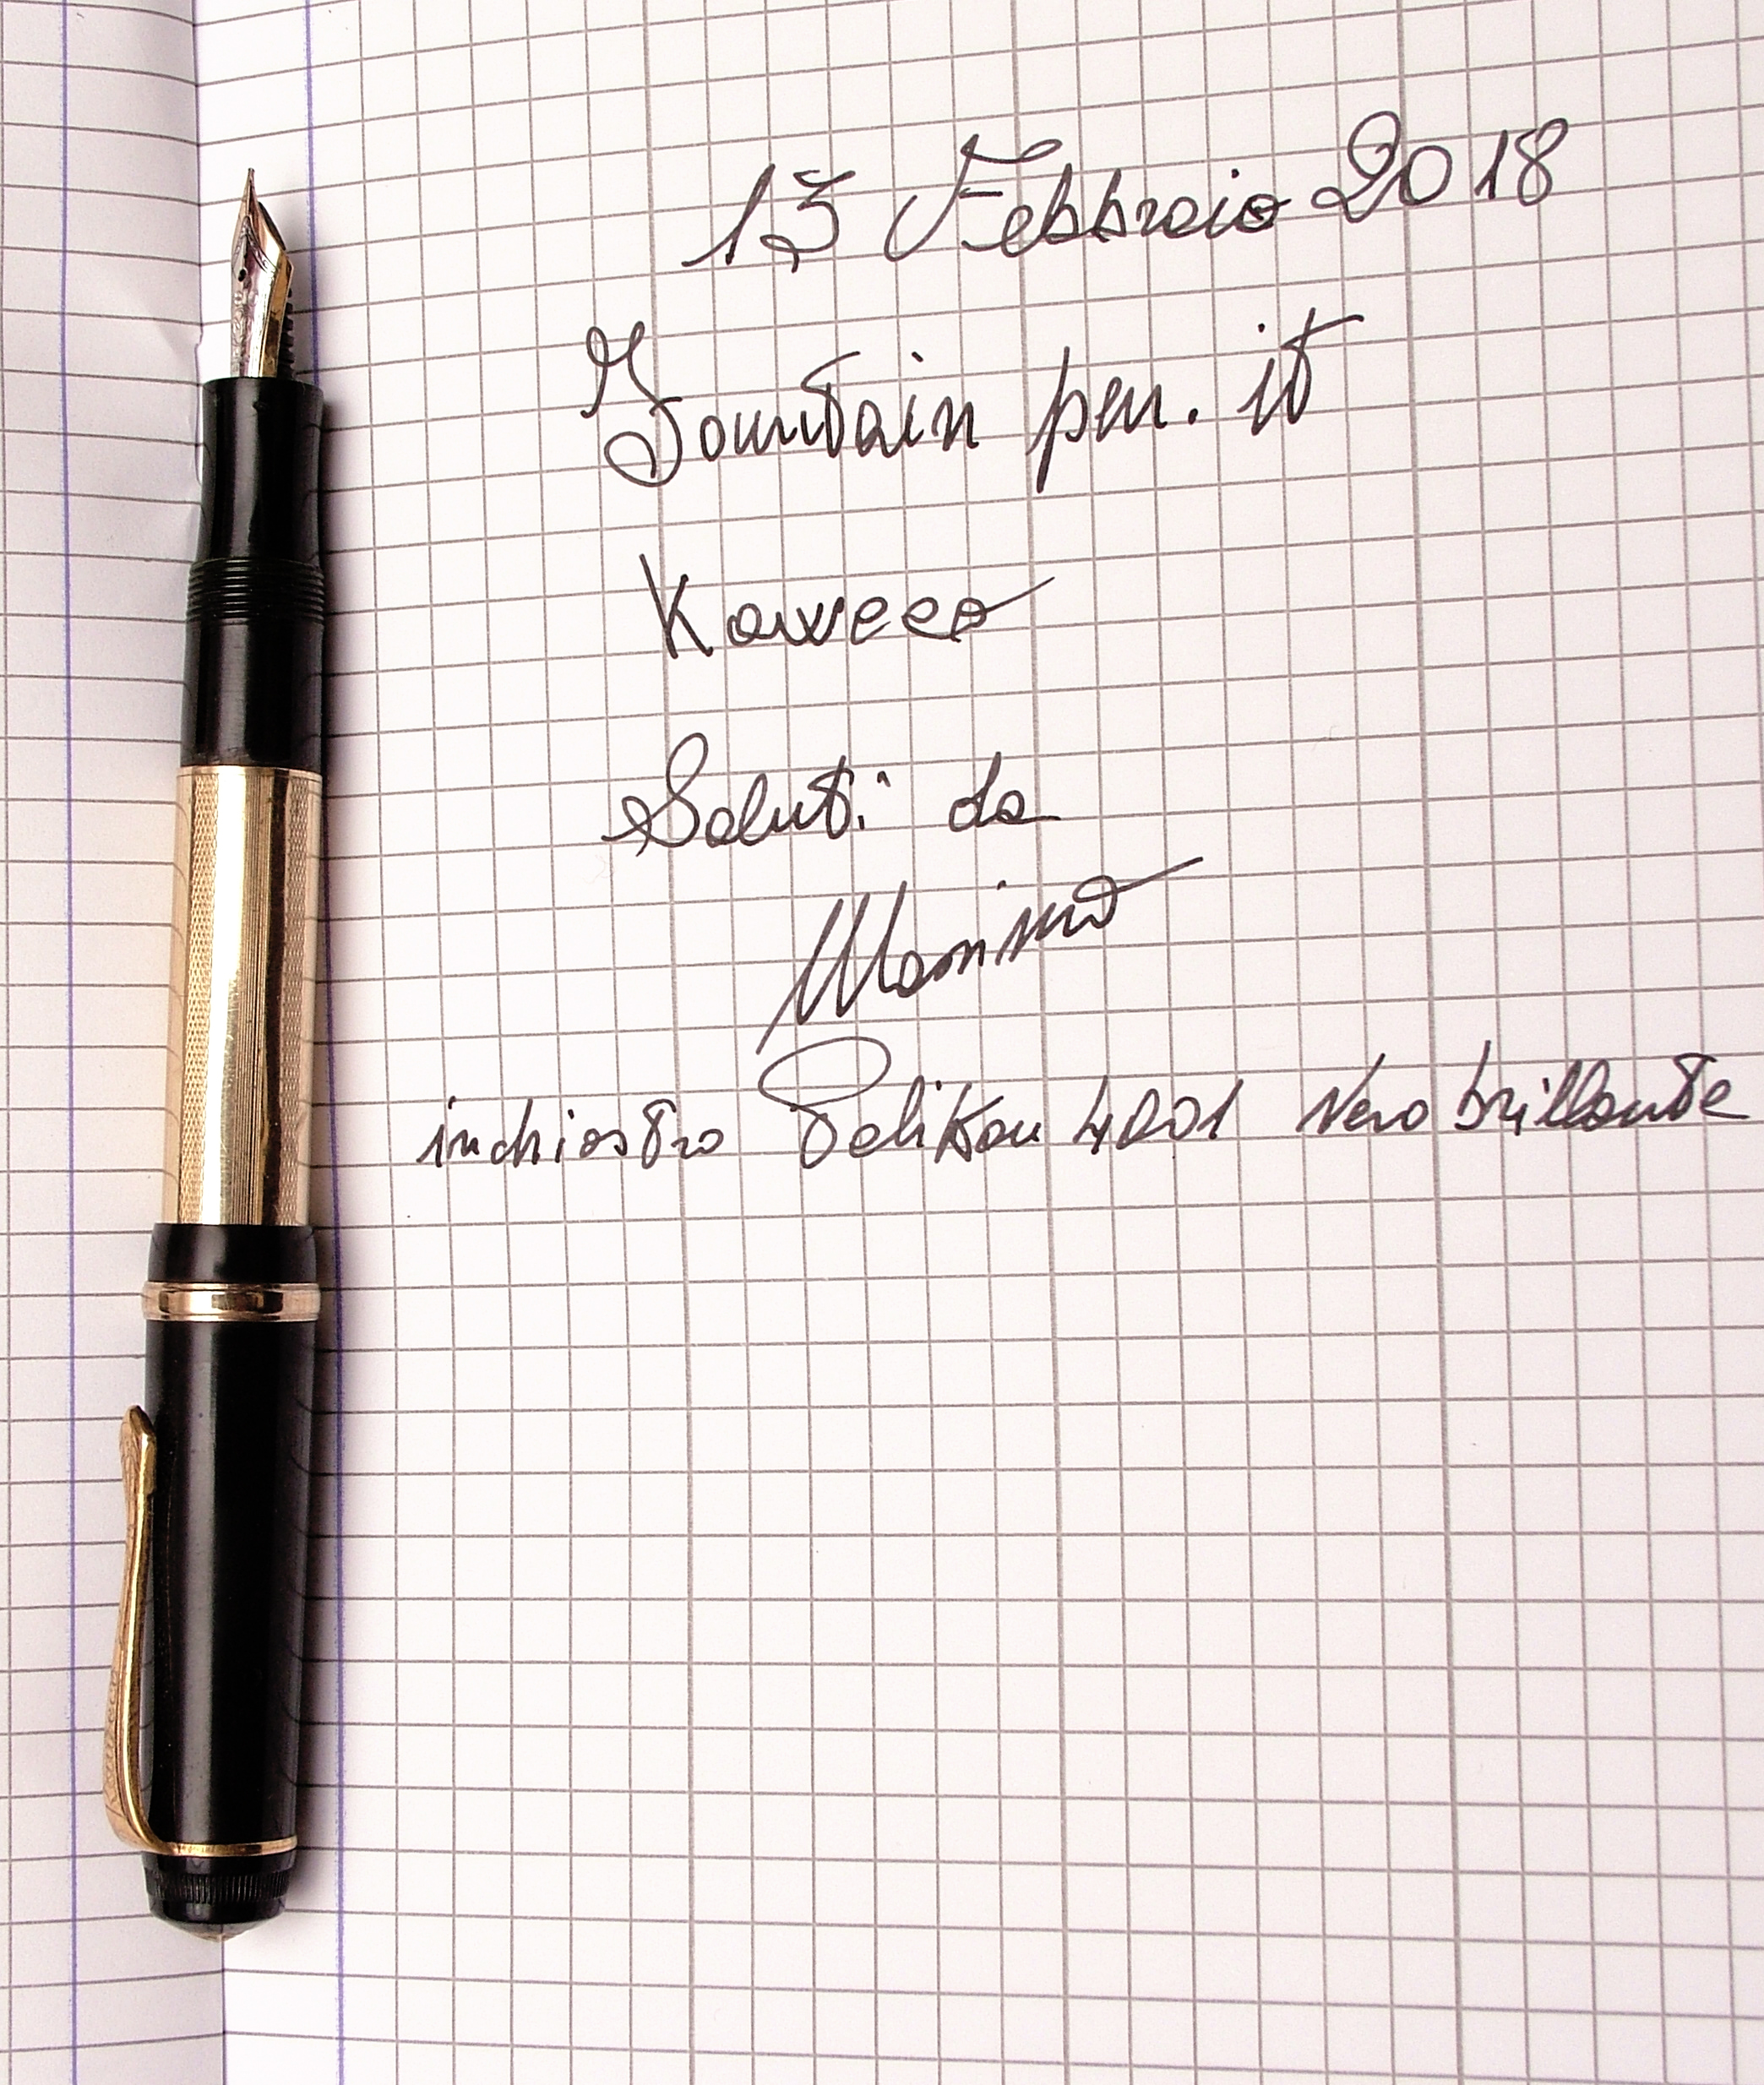 13 Febbraio 2018
Fountain pen. it
Kaweco
Saluti da
Massimo
inchiostro Pelikan 4001 Nero brillante